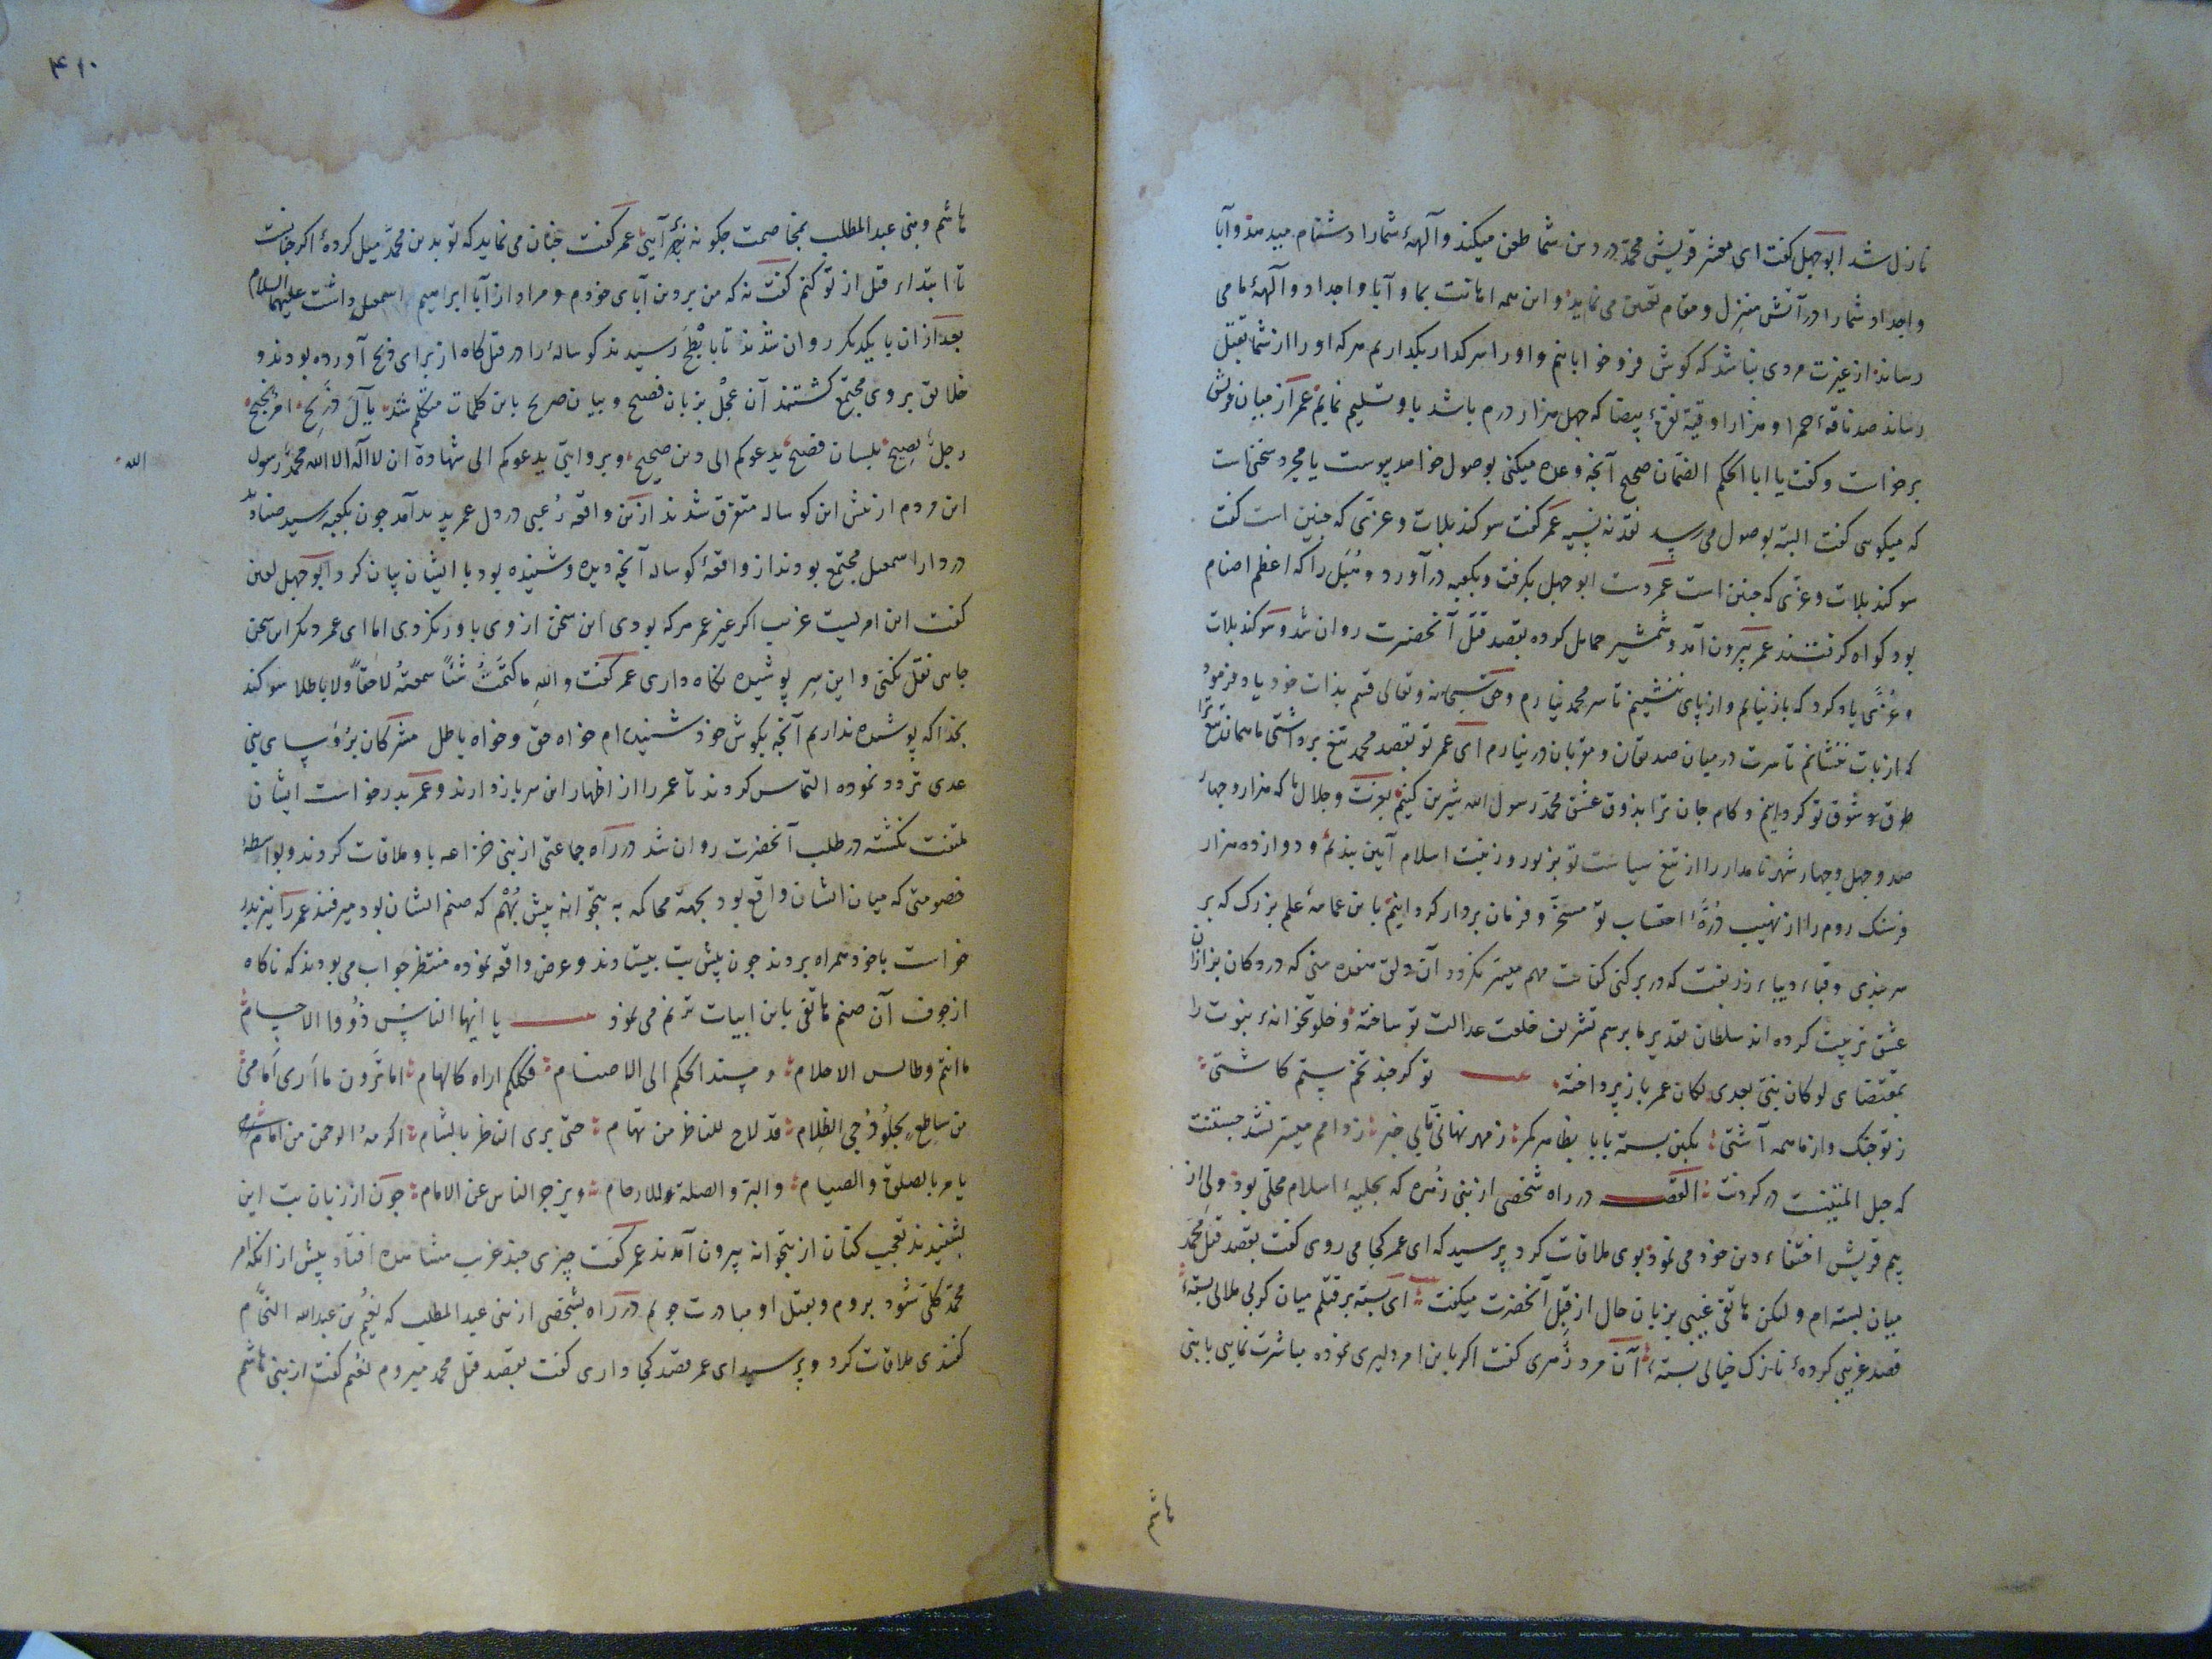 نازل شد ابوجهل کفت ای معشر قریش محمد در دین شما طعن میکند وآلههٔ شمارا دشنام میدهد وآبا
واجداد شمارا در آتش منزل ومقام تعیین می نماید واین همه اهانت بما وآبا واجداد وآلههٔ ما می
رساند از غیرت مردی نباشد که کوش فرو خوابانیم واورا بکذاریم هرکه اورا از شما بقتل
رساند صد ناقهٔ حمرا وهزار اوقیه نقرهٔ بیضا که چهل هزار درم باشد باو تسلیم نمایم عمر از میان قریش
برخواست وکفت یا ابا الحکم الضمان صحیح آنچه وعده میکنی بوصول خواهد پیوست یا مجرد سخنی است
که میکویی کفت البته بوصول می رسد نقد نه نسیه عمر کفت سوکند بلات وعزی که چنین است کفت
سوکند بلات وعزی که چنین است عمر دست ابوجهل بکرفت وبکعبه درآورد وهبل را که اعظم اصنام
بود کواه کرفتند عمر بیرون آمد وشمشیر حمایل کرده بقصد قتل آنحضرت روان شد وسوکند بلات
وعزی یاد کرد که باز نیایم واز پای ننشینم تا سر محمد نیارم وحق سبحانه وتعالی قسم بذات خود یاد فرمود
که از پات ننشانم تا سرت درمیان صدیقان ومقربان درنیارم ای عمر تو بقصد محمد تیغ برداشتی ما همان تیغ ترا
طوق شوق تو کردانیم وکام جان ترا بذوق عشق محمد رسول الله شیرین کنیم بعزت وجلال ما که هزار وچهار
صد وچهل وچهار شهر نامدار را از تیغ سیاست تو بزیور وزینت اسلام آیین بندیم ودوازده هزار
فرسنک روم را از نهیب درهٔ احتساب تو مسخر وفرمان بردار کردانیم باین عمامهٔ علم بزرک که بر
سر بندی وقباء دیباء زربفت که در بر کنی کفایت مهم میسر نکردد آن دلق هفده منی که در دکان بزازان
عشق ترتیب کرده اند سلطان تقدیر ما برسم تشریف خلعت عدالت تو ساخته وخلوتخانهٔ نبوت را
بمقتضای لو کان نبی بعدی لکان عمر باز پرداخته تو کر چند تخم ستم کاشتی
ز تو جنک واز ما همه آشتی بکین بسته بابا بظاهر کمر ز مهر نهانی نیابی خبر ز دامم میسر نشد جستنت
که حبل المتینست در کردنت القصه در راه شخصی از بنی زهره که بحلیهٔ اسلام محلی بود ولی از
بیم قریش اختفاء دین خود می نمود بوی ملاقات کرد پرسید که ای عمر کجا می روی کفت بقصد قتل محمد
میان بسته ام ولکن هاتفی غیبی بزبان حال از قبل آنحضرت میکفت ای بسته بر قتلم میان کر بی ملالی بستهٔ
قصد غریبی کردهٔ نازک خیالی بستهٔ آن مرد زهری کفت اکر باین امر دلیری نموده مباشرت نمایی با بنی
هاشم
۴۱۰
هاشم وبنی عبدالمطلب بمخاصمت چکونه برآیی عمر کفت چنان می نماید که تو بدین محمد میل کردهٔ اکر چنانست
تا ابتداء قتل از تو کنم کفت نه که من بر دین آبای خودم ومراد از آبا ابراهیم اسمعیل داشت علیهما السلام
بعد از ان با یکدیکر روان شدند تا بابطح رسیدند کوسالهٔ را در قتلکاه از برای ذبح آورده بودند و
خلایق بروی مجتمع کشتند آن عجل بزبان فصیح وبیان صریح باین کلمات متکلم شد یا آل ذریح امر نجیح
رجل یصیح بلسان فصیح یدعوکم الی دین صحیح وبروایتی یدعوکم الی شهادة ان لااله الا الله محمد رسول
الله
این مردم از پیش این کوساله متفرق شدند ازین واقعه رعبی در دل عمر پدید آمد چون بکعبه رسید صنادید
در دار اسمعیل مجتمع بودند از واقعهٔ کوساله آنچه دیده وشنیده بود با ایشان بیان کرد ابوجهل لعین
کفت این امریست غریب اکر غیر عمر هرکه بودی این سخن ازوی باور نکردمی اما ای عمر دیکر این سخن
جایی نقل نکنی واین سر پوشیده نکاه داری عمر کفت والله ما کتمت شیئا سمعته لاحقا ولا باطلا سوکند
بخدا که پوشیده ندارم آنچه بکوش خود شنیده ام خواه حق وخواه باطل مشرکان برؤسای بنی
عدی تردد نموده التماس کردند تا عمر را از اظهار این سر باز دارند وعمر بدرخواست ایشان
ملتفت نکشته در طلب آنحضرت روان شد در راه جماعتی از بنی خزاعه باو ملاقات کردند وبواسطهٔ
خصومتی که میان ایشان واقع بود بجهة محاکمه به بتخانه پیش بهم که صنم ایشان بود میرفتند عمر را نیز بدر
خواست با خود همراه بردند چون پیش بت بیستادند وعرض واقعه نموده منتظر جواب می بودند که ناکاه
از جوف آن صنم هاتفی باین ابیات ترنم می نمود یا ایها الناس ذووا الاجسام
ما انتم وطایس الاحلام ومسند الحکم الی الاصنام فکلکم اراه کالهام اما ترون ما اری امامی
من ساطع یجلو دجی الظلام قد لاح للناظر من تهام حتی یری الناظر بالشام اکرمه الرحمن من امام
یامر بالصلوة والصیام والبر والصلة وللارحام ویزجر الناس عن الاثام چون از زبان بت این
بشنیدند تعجب کنان از بتخانه بیرون آمدند عمر کفت چیزی چند غریب مشاهده افتاد پیش از انکه امر
محمد کلی شود بروم وبقتل او مبادرت جویم در راه بشخصی از بنی عبدالمطلب که نعیم بن عبدالله النحام
کفتندی ملاقات کرد وپرسید ای عمر قصد کجا داری کفت بقصد قتل محمد میروم نعیم کفت از بنی هاشم